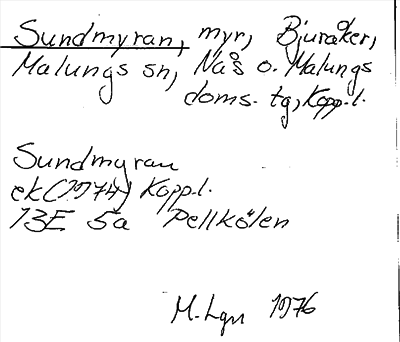 Sundmyran, myr, Bjuråker,
Malungs sn, Nås o. Malungs
doms. tg, Kopp.l.
Sundmyran
ek(1974) Kopp.l.
13E 5a Pellkölen
M. Lgn 1976